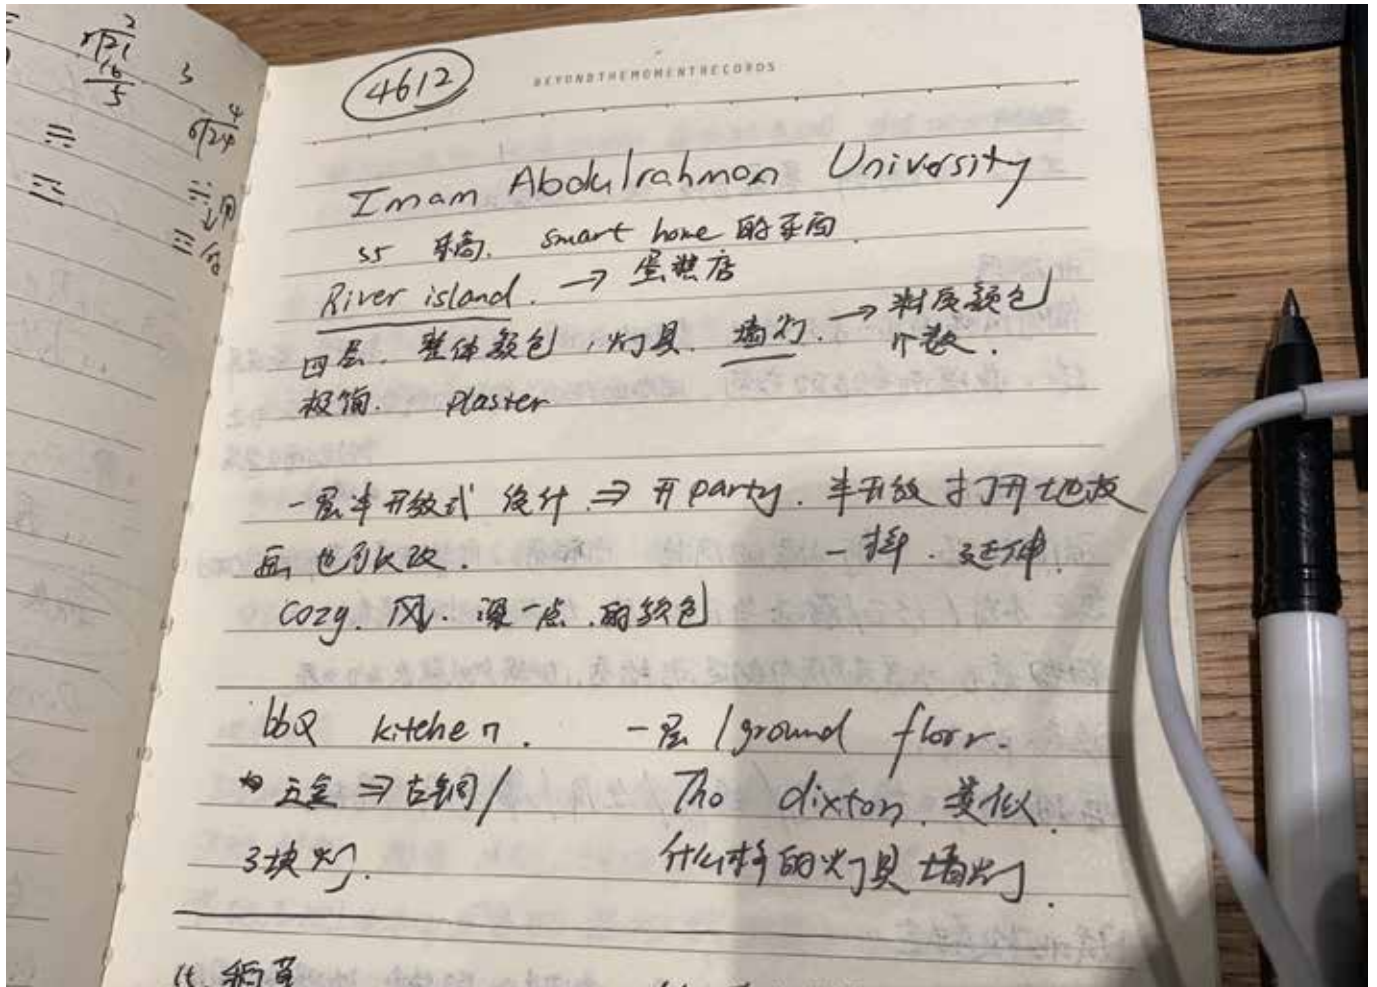 2
21
16
5
3
4
6 24
用
三
4612
BEYONDTHEMOMENTRECORDS
Imam Abdulrahman University
55 smart home 的平面
River island. → 蛋糕店
四层. 整体颜色, 灯具. 墙灯. → 材质颜色
个数.
极简. plaster
一层半开放式 设计 ⇒ 开party. 半开放 打开地板
画也可以改. 一样. 延伸.
cozy. 风. 深一点.的颜色
bbQ kitchen. 一层/ground florr.
五金 ⇒ 古铜/ Tho dixton. 类似.
3块灯. 什么样的灯具 墙灯.